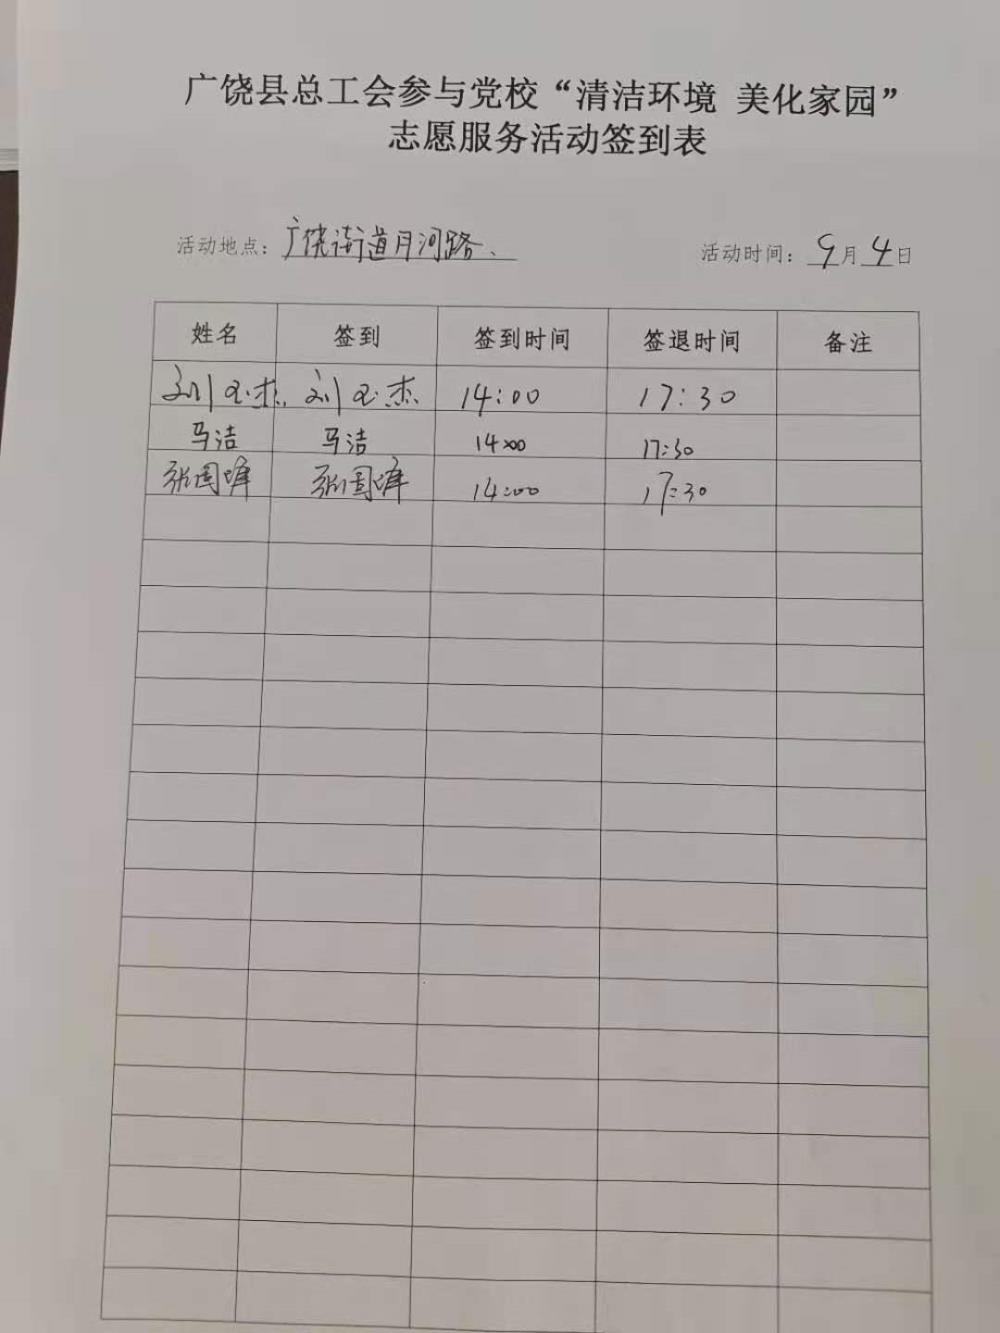 广饶县总工会参与党校“清洁环境 美化家园”
志愿服务活动签到表
活动地点：广饶街道月河路、 活动时间：9月4日
姓名 签到 签到时间 签退时间 备注
刘玉杰 刘玉杰 14:00 17:30
马洁 马洁 14:00 17:30
张国 张国 14:00 17:30